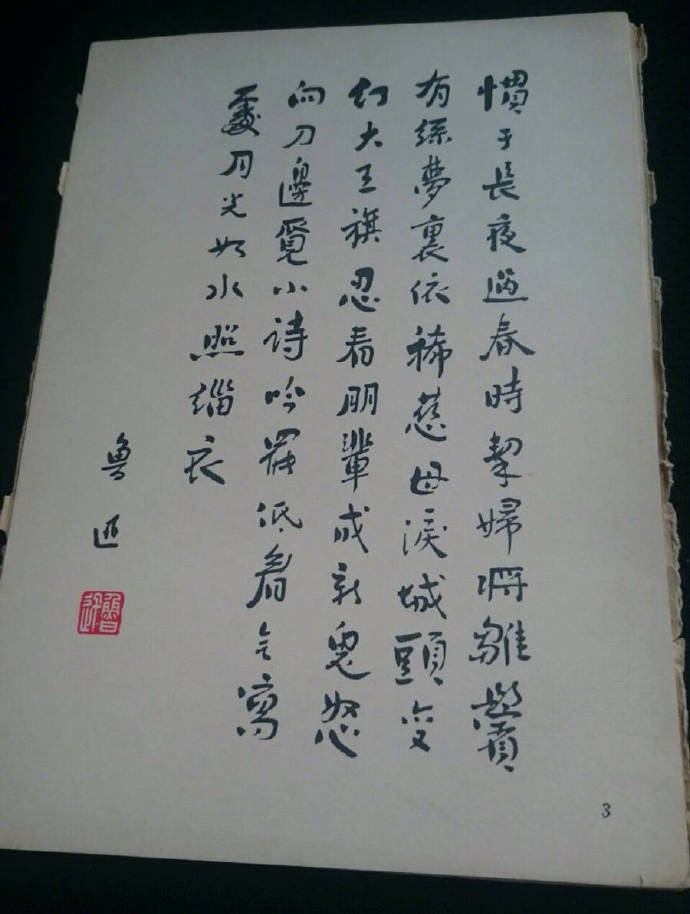 慣于長夜過春時挈婦將雛鬢
有絲夢裏依稀慈母淚城頭變
幻大王旗忍看朋輩成新鬼怒
向刀邊覓小詩吟罷低眉无寫
處月光如水照緇衣
魯迅
魯迅
3